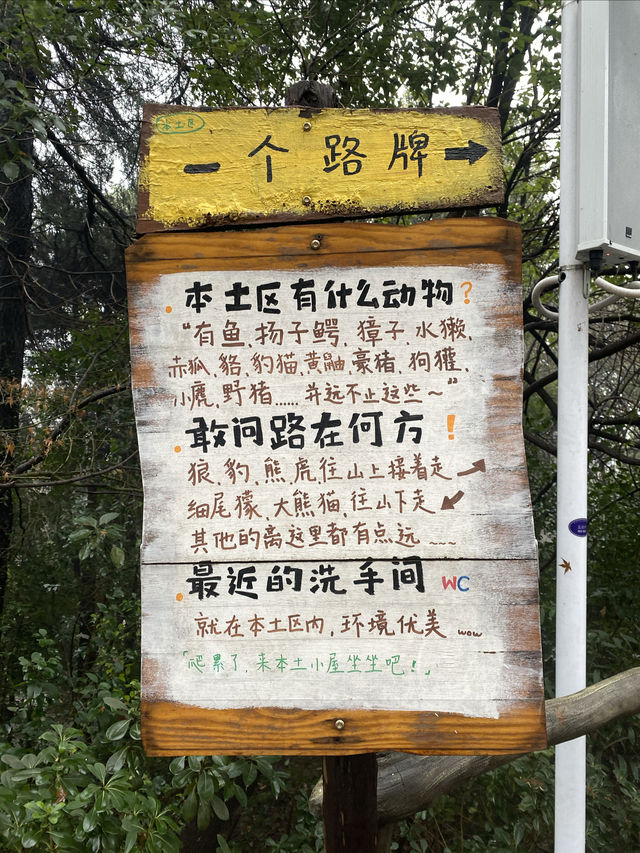 本土区
一个路牌→
·本土区有什么动物?
"有鱼、扬子鳄、獐子、水獭、
赤狐、貉、豹猫、黄鼬、豪猪、狗獾、
小麂、野猪……并远不止这些~"
·敢问路在何方!
狼、豹、熊、虎往山上接着走↗
细尾獴、大熊猫、往山下走↙
其他的离这里都有点远~~~
·最近的洗手间 WC
就在本土区内,环境优美 wow
「爬累了,来本土小屋坐坐吧!」